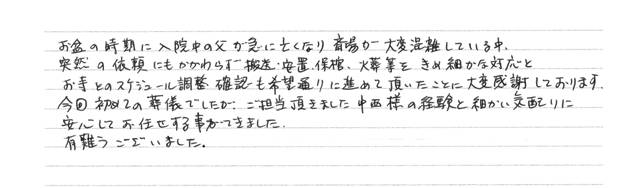 お盆の時期に入院中の父が急に亡くなり斎場が大変混雑している中、
突然の依頼にもかかわらず搬送・安置・保棺、火葬等をきめ細かな対応と
お寺とのスケジュール調整 確認も希望通りに進めて頂いたことに大変感謝しております。
今回初めての葬儀でしたが、ご担当頂きました中西様の経験と細かい気配りに
安心してお任せする事ができました。
有難うございました。